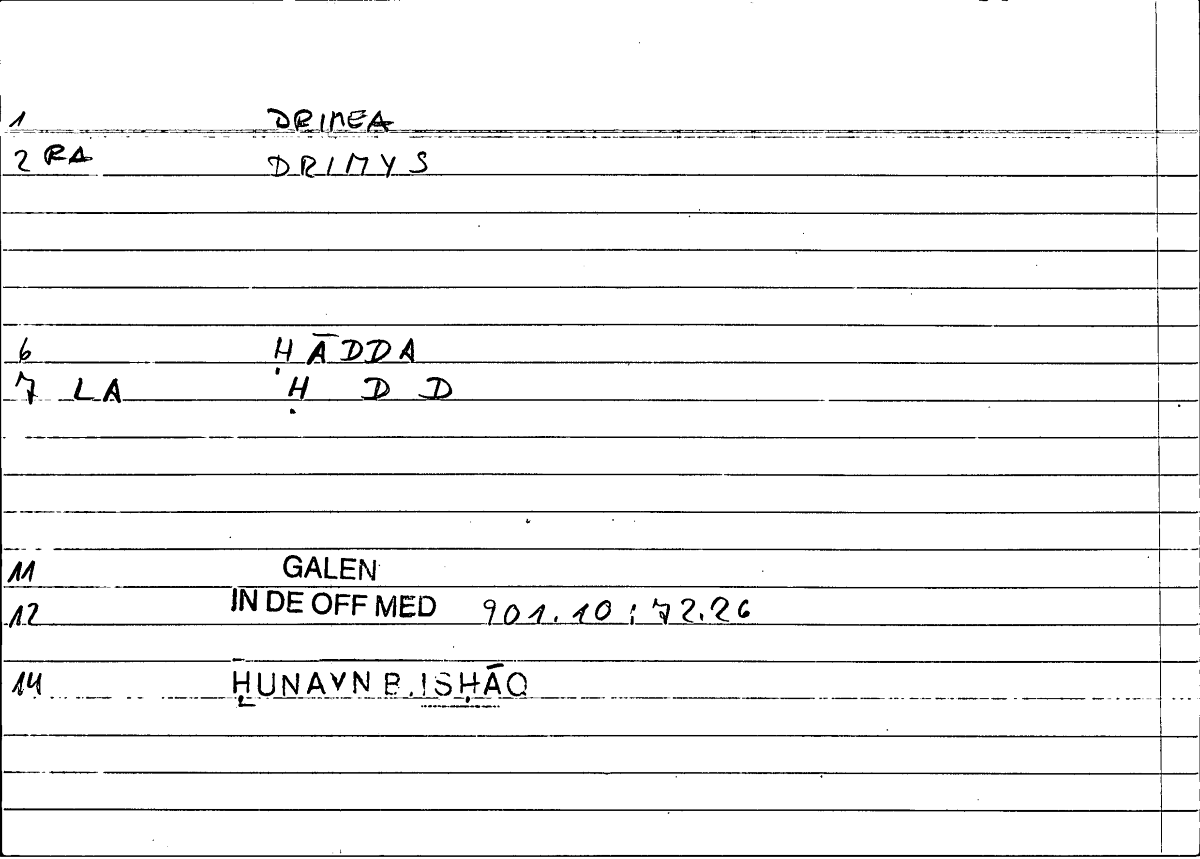 1 DRIMEA
2 RA DRIMYS
6 ḤĀDDA
7 LA Ḥ D D
11 GALEN
12 IN DE OFF MED 901.10 ; 72.26
14 ḤUNAYN B. ISḤĀQ